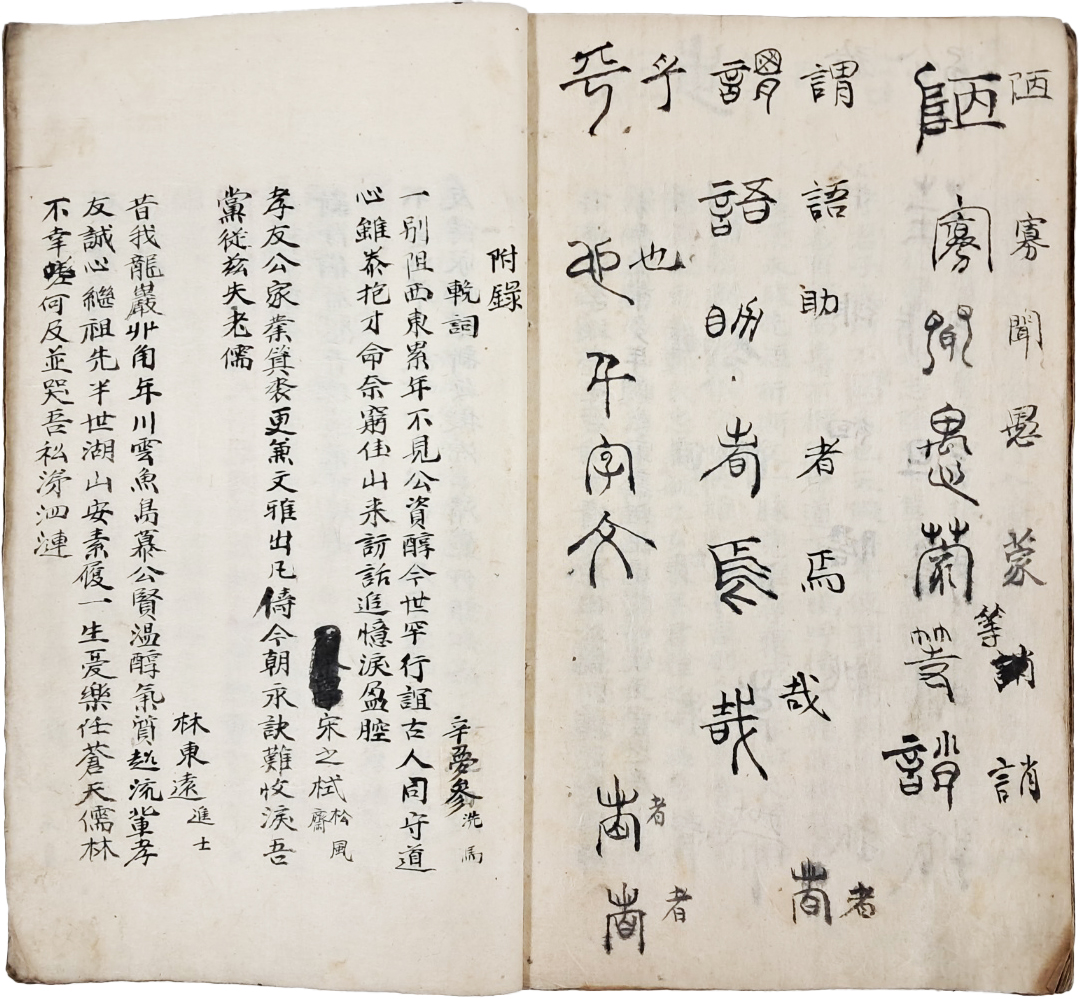 陋寡聞愚蒙等誚
陋寡聞愚蒙等誚
謂語助者焉哉者
謂語助者焉哉者
乎也者者
乎也千字文者者
附錄
輓詞
辛夢參 洗馬
一別阻西東累年不見公資醇今世罕行誼古人同守道
心雖泰抱才命奈窮佳山來訪話追憶淚盈腔
宋之栻 松風齋
孝友公家業箕裘更兼文雅出凡儔今朝永訣難收淚吾
黨從玆失老儒
林東遠 進士
昔我龍巖丱角年川雲魚島慕公賢溫醇氣質超流輩孝
友誠心繼祖先半世湖山安素履一生憂樂任蒼天儒林
不幸嗟何及並哭吾私涕泗漣